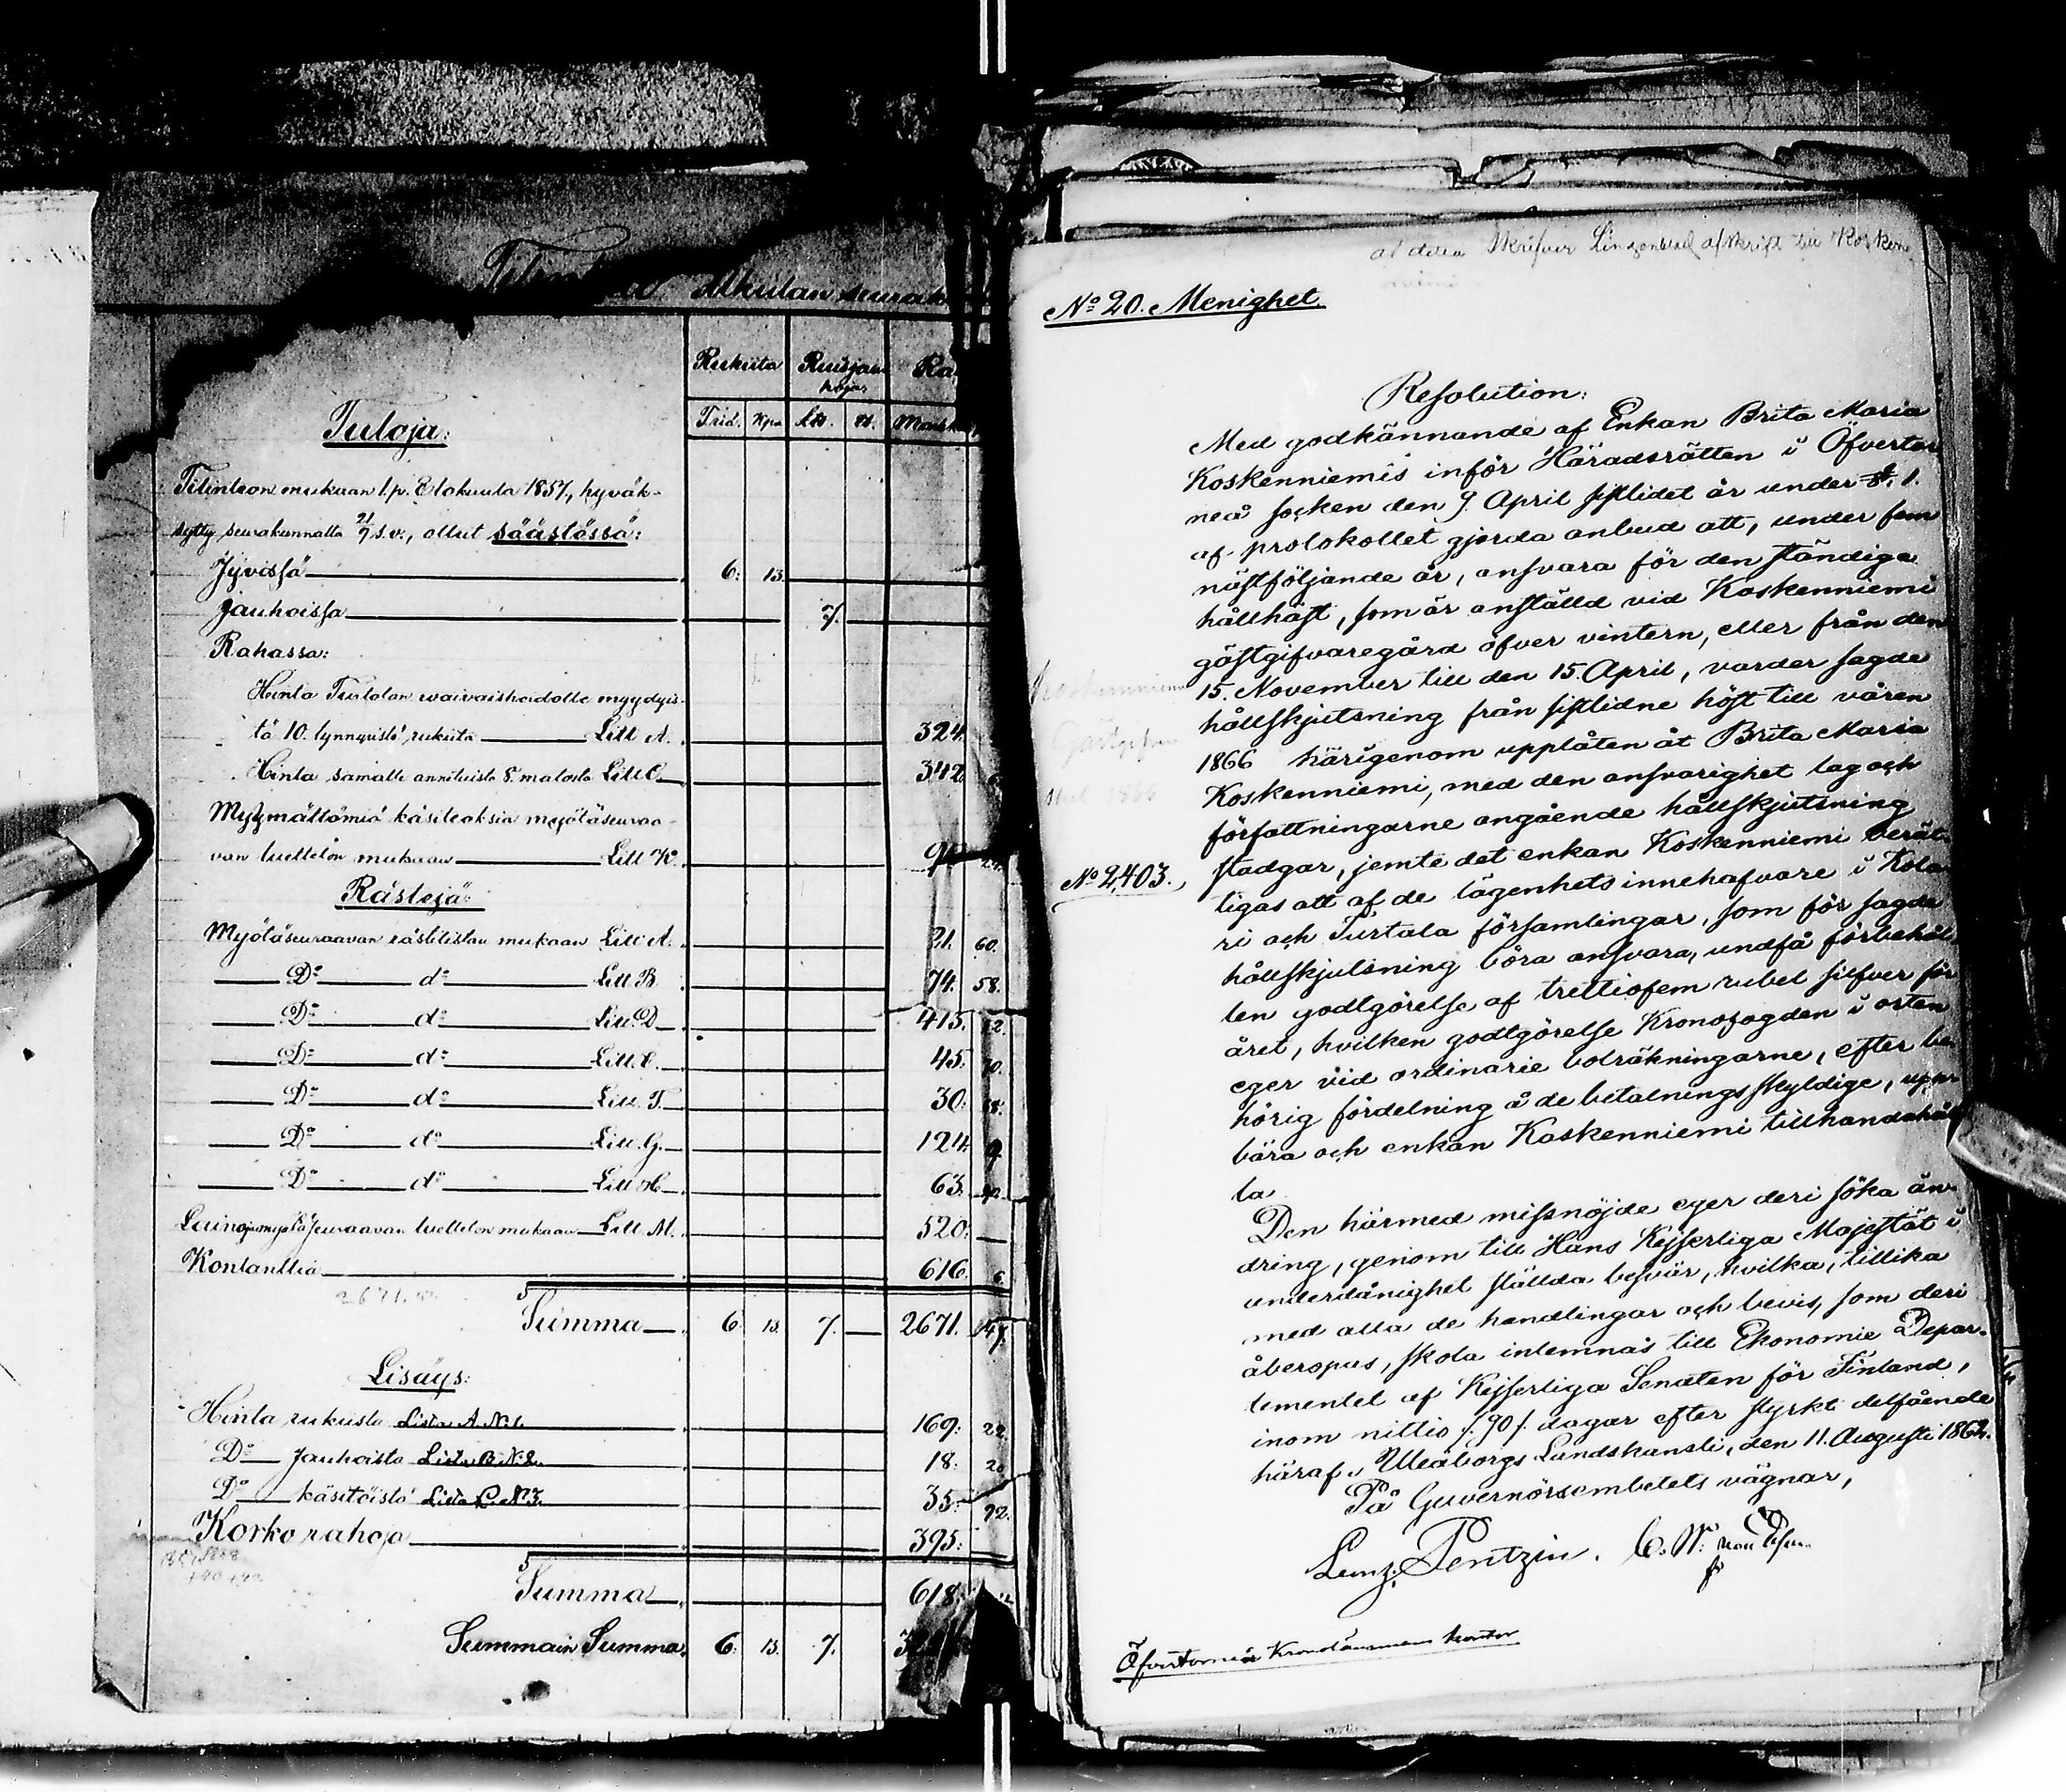 Alkulan seurak
Rukiita Ruisjau Ra
hoja
Trid. Kpa Lts. Mark
Tuloja:
Tilinteon mukaan l.p. Elokuuta 1857, hyväk-
sytty seurakunnalta 21/7 s.v., ollut säästössä:
Jyvissä 6. 13.
Jauhoissa 7.
Rahassa:
Hinta Turtolan waivaishoidolle myydyis-
tä 10. tynnyristä rukiita Litt A. 324.
Hinta samalle annetuista 8. matosta Litt C. 342
Myymättömiä käsiteoksia myötäseuraa-
van luettelon mukaan Litt K.
Rästejä:
Myötäseuraavan rästilistan mukaan Litt A. 21. 60.
Do do Litt B. 74. 58.
Do do Litt D. 415. 12.
Do do Litt E. 45. 70.
Do do Litt F. 30. 18.
Do do Litt G. 124.
Do do Litt H. 63.
Lainoja myötäseuraavan luettelon mukaan Litt M. 520.
Kontanttia 616. 6
2671.
Summa 6. 13. 7. 2671. 47.
Lisäys:
Hinta rukiista Lista A. No 1. 169. 22.
Do Jauhoista Lista B. No 2. 18. 20
Do käsitöistä Lista C. No 3. 35. 92.
Korko rahoja 395.
Summa 618.
Summain Summa. 6. 13. 7.
af detta skrifver afskrift till Kosken
No 20. Menighet.
Resolution:
Med godkännande af Enkan Brita Maria
Koskenniemis inför Häradsrätten i Öfvertor
neå socken den 9. April sistlidet år under §. 1.
af protokollet gjorda anbud att, under fem
nästföljande år, ansvara för den ständiga
hållhäst, som är anställd vid Koskenniemi
gästgifvaregård öfver vintern, eller från den
15. November till den 15. April, varder sagde
hållskjutsning från sistlidne höst till våren
1866 härigenom upplåten åt Brita Maria
Koskenniemi, med den ansvarighet lag och
författningarne angående hållskjutsning
stadgar, jemte det enkan Koskenniemi berät
No 2,403.
tigas att af de lägenhets innehafvare i Kola
ri och Turtala församlingar, som för sagde
hållskjutsning böra ansvara, undfå förbehål
len godtgörelse af trettiofem rubel silfver för
året, hvilken godtgörelse Kronofogden i orten
eger vid ordinarie boträkningarne, efter be
hörig fördelning å de betalningsskyldige, upp
bära och enkan Koskenniemi tillhandahål
la.
Den härmed missnöjde eger deri söka än
dring, genom till Hans Kejserliga Majestät i
underdånighet ställda besvär, hvilka, tillika
med alla de handlingar och bevis, som deri
åberopas, skola inlemnas till Ekonomie Depar-
tementet af Kejserliga Senaten för Finland,
inom nittio /:90/: dagar efter styrkt delfående
häraf. Uleåborgs Landskansli, den 11. Augusti 1862.
På Guvernörsembetets vägnar,
Lenz. Pentzin. C. W. von
Öfvertorneå Kronolänsmans kontor